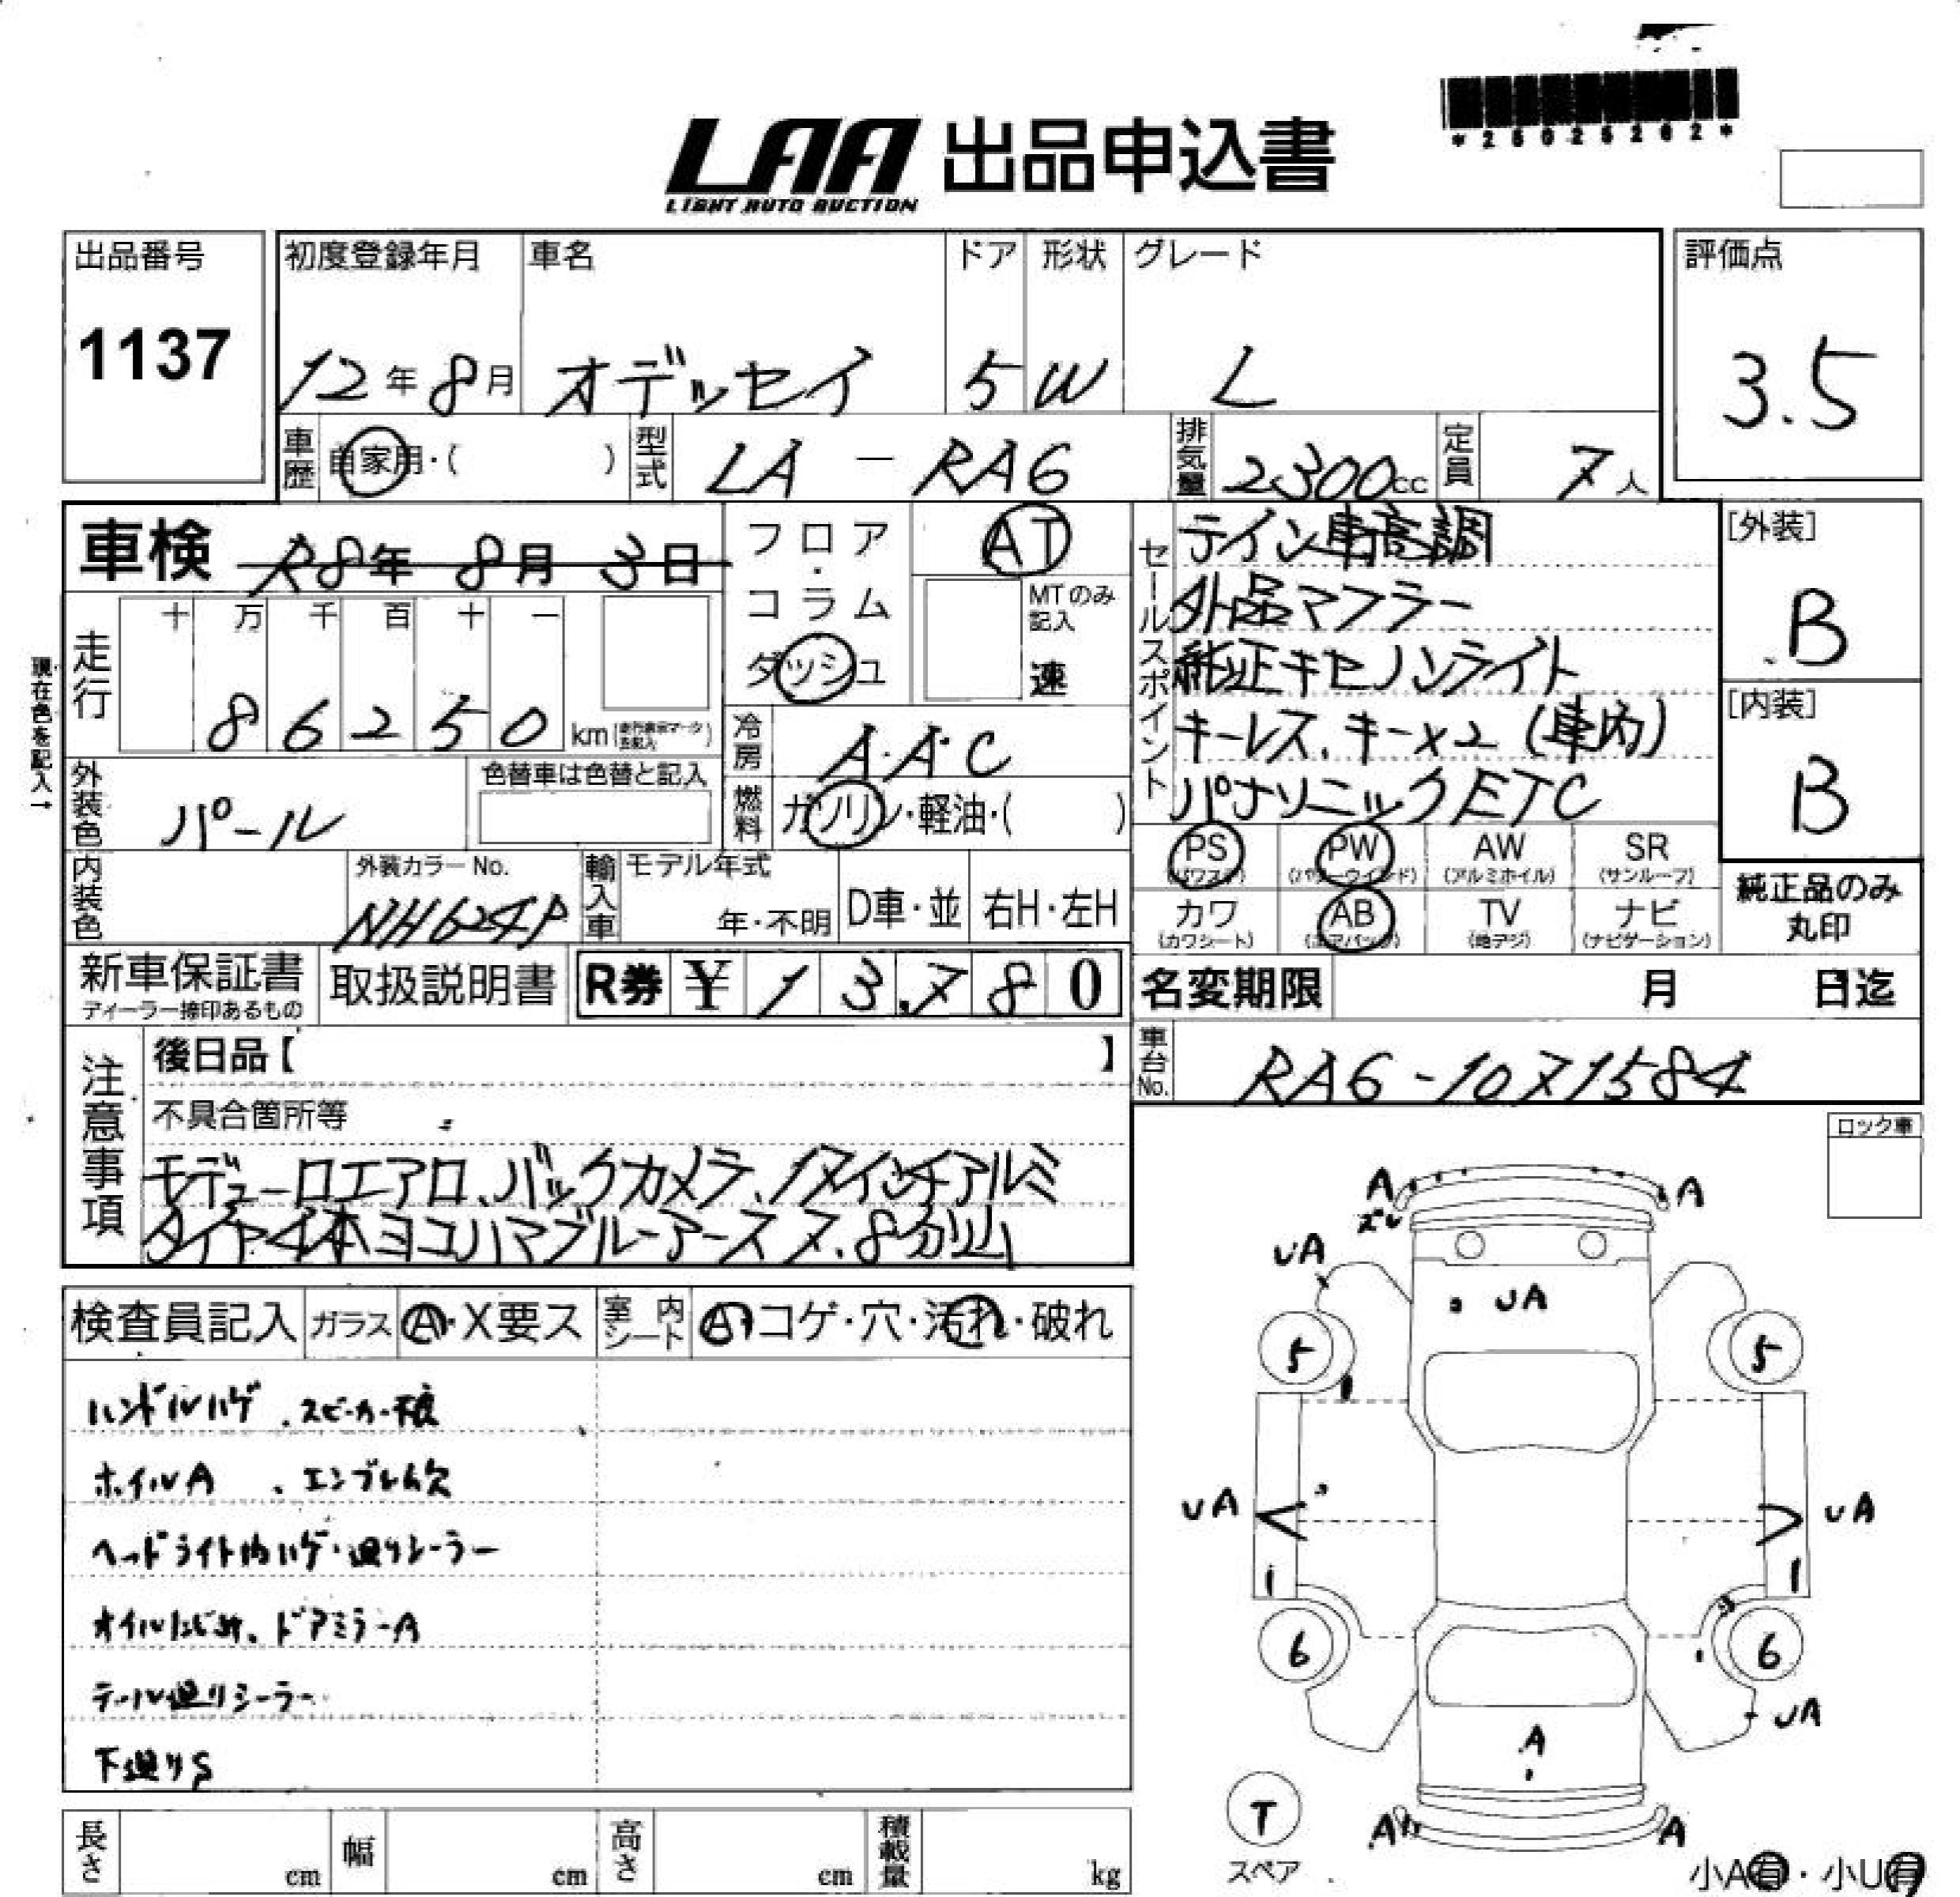 LAA 出品申込書
LIGHT AUTO AUCTION
*26026202*
出品番号
1137
初度登録年月
12年8月
車名
オデッセイ
ドア
5
形状
W
グレード
L
評価点
3.5
車歴
自家用・( )
型式
LA - RA6
排気量
2300cc
定員
7人
車検 R8年 8月 3日
フロア・コラム
ダッシュ
AT
MTのみ記入
速
セールスポイント
テイン車高調
外品マフラー
純正キセノンライト
キーレス、キー×2 (車内)
パナソニックETC
[外装]
B
[内装]
B
現在色を記入→
走行
十 万 千 百 十 一
8 6 2 5 0 km
冷房
A・A・C
外装色
パール
色替車は色替と記入
燃料
ガソリン・軽油・( )
内装色
外装カラーNo.
NH624P
輸入車
モデル年式
年・不明
D車・並
右H・左H
PS
(パワステ)
PW
(パワーウインド)
AW
(アルミホイル)
SR
(サンルーフ)
カワ
(カワシート)
AB
(エアバック)
TV
(地デジ)
ナビ
(ナビゲーション)
純正品のみ
丸印
新車保証書
ディーラー捺印あるもの
取扱説明書
R券 ¥13,780
名変期限 月 日迄
車台No.
RA6-1071584
注意事項
後日品【 】
不具合箇所等
モデューロエアロ、バックカメラ、17インチアルミ
タイヤ4本ヨコハマブルーアース7、8分山
ロック車
検査員記入
ガラス
A・X要ス
室内シート
A・コゲ・穴・汚れ・破れ
ハンドルハゲ、スピーカー不良
ホイルA、エンブレム欠
ヘッドライト内ハゲ・廻りシーラー
オイルにじみ、ドアミラーA
テール廻りシーラー
下廻りS
A
A
ズレ
UA
UA
5
5
UA
UA
i
1
6
6
UA
A
T
スペア
A
A
小A有・小U有
長さ cm
幅 cm
高さ cm
積載量 kg